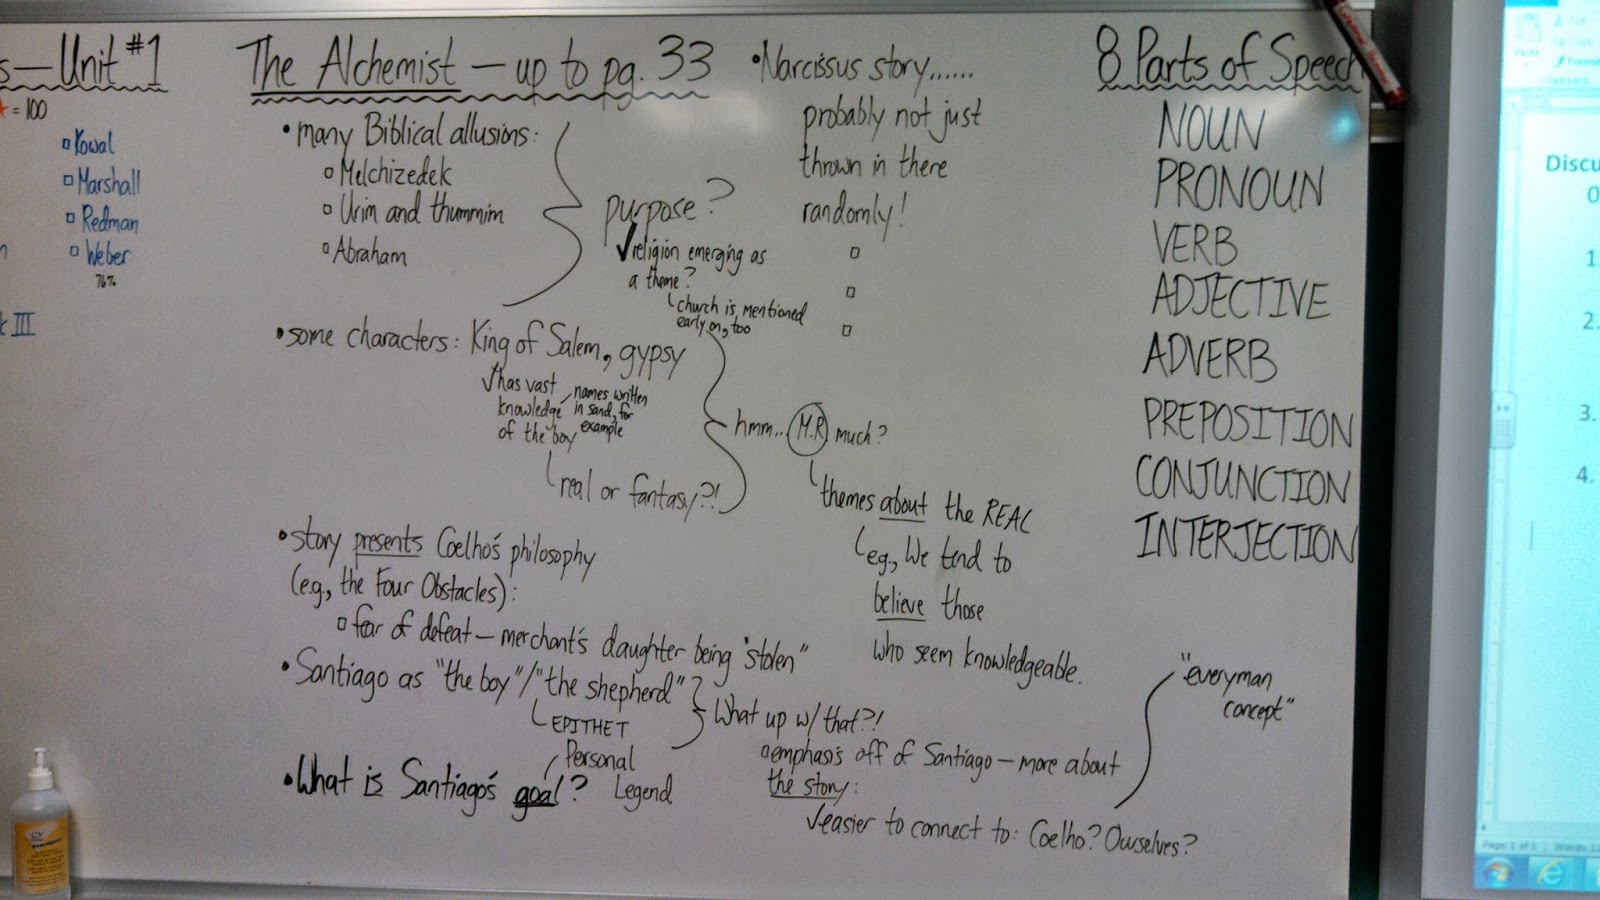 s—Unit #1
= 100
Kowal
Marshall
Redman
Weber
76%
III
The Alchemist — up to pg. 33
• many Biblical allusions:
Melchizedek
Urim and thummim
Abraham
purpose?
✓religion emerging as
a theme?
church is mentioned
early on, too
• some characters: King of Salem, gypsy
✓has vast
knowledge
of the boy
names written
in sand, for
example
real or fantasy?!
hmm... M.R much?
themes about the REAL
e.g., We tend to
believe those
who seem knowledgeable.
• story presents Coelho's philosophy
(e.g., the Four Obstacles):
fear of defeat — merchant's daughter being "stolen"
• Santiago as "the boy"/"the shepherd"
EPITHET
What up w/ that?!
emphasis off of Santiago — more about
the story:
✓easier to connect to: Coelho? Ourselves?
"everyman
concept"
• What is Santiago's goal?
Personal
Legend
• Narcissus story......
probably not just
thrown in there
randomly!
8 Parts of Speech
NOUN
PRONOUN
VERB
ADJECTIVE
ADVERB
PREPOSITION
CONJUNCTION
INTERJECTION
Discu
1.
2.
3.
4.
Page: 1 of 1